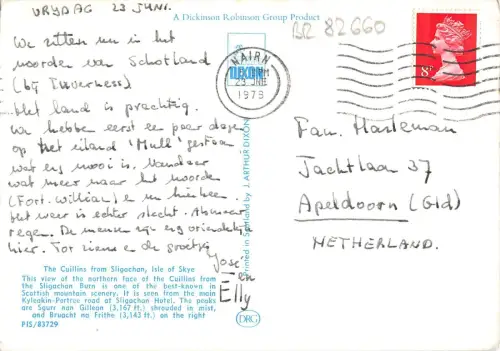 VRYDAG 23 JUNI.
We zitten nu in het
noorden van Schotland
(bij Inverness)
Het land is prachtig.
We hebben eerst een paar dagen
op het eiland 'Mull' gestaan
wat erg mooi is. Vandaar
wat meer naar het noorden
(Fort. William) en nu hier
het weer is echter slecht.
regen. De mensen zijn erg vriendelijk
hier. Tot ziens en de groetjes
José
en
Elly
The Cuillins from Sligachan, Isle of Skye
This view of the northern face of the Cuillins from
the Sligachan Burn is one of the best-known in
Scottish mountain scenery. It is seen from the main
Kyleakin-Portree road at Sligachan Hotel. The peaks
are Sgurr nan Gillean (3,167 ft.) shrouded in mist,
and Bruachd na Frithe (3,143 ft.) on the right
PIS/83729
A Dickinson Robinson Group Product
DIXON
Printed in Scotland by J. ARTHUR DIXON
DRG
BR 82660
NAIRN
1979
8P
Fam. Hasleman
Jachtlaan 37
Apeldoorn (Gld)
NETHERLAND.